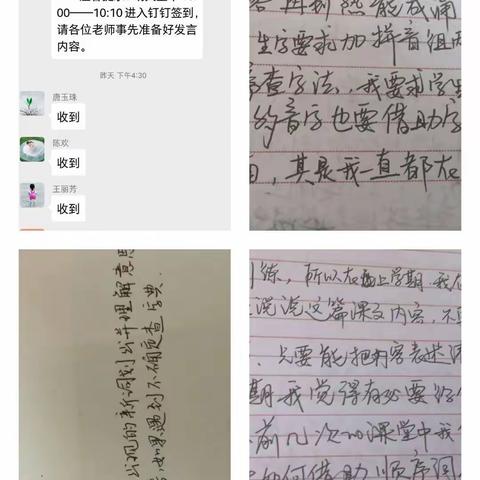 00——10:10 进入钉钉签到,
请各位老师事先准备好发言
内容。
昨天 下午4:30
唐玉珠
收到
陈欢
收到
王丽芳
收到
生字要求加拼音组两
音查字法,我要求学生
多音字也要借助字
其是我一直都在
出现的新词划出并理解意思
如果遇到不确定查字典.
练,所以在上学期,我在
说说这篇课文内容,不
只要能把内容表述清
期我觉得有必要
前几次的课堂中我
如何借助顺序词